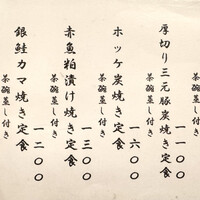 厚切り三元豚炭焼き定食
一一〇〇
茶碗蒸し付き
ホッケ炭焼き定食
一六〇〇
茶碗蒸し付き
赤魚粕漬け焼き定食
一三〇〇
茶碗蒸し付き
銀鮭カマ焼き定食
一二〇〇
茶碗蒸し付き